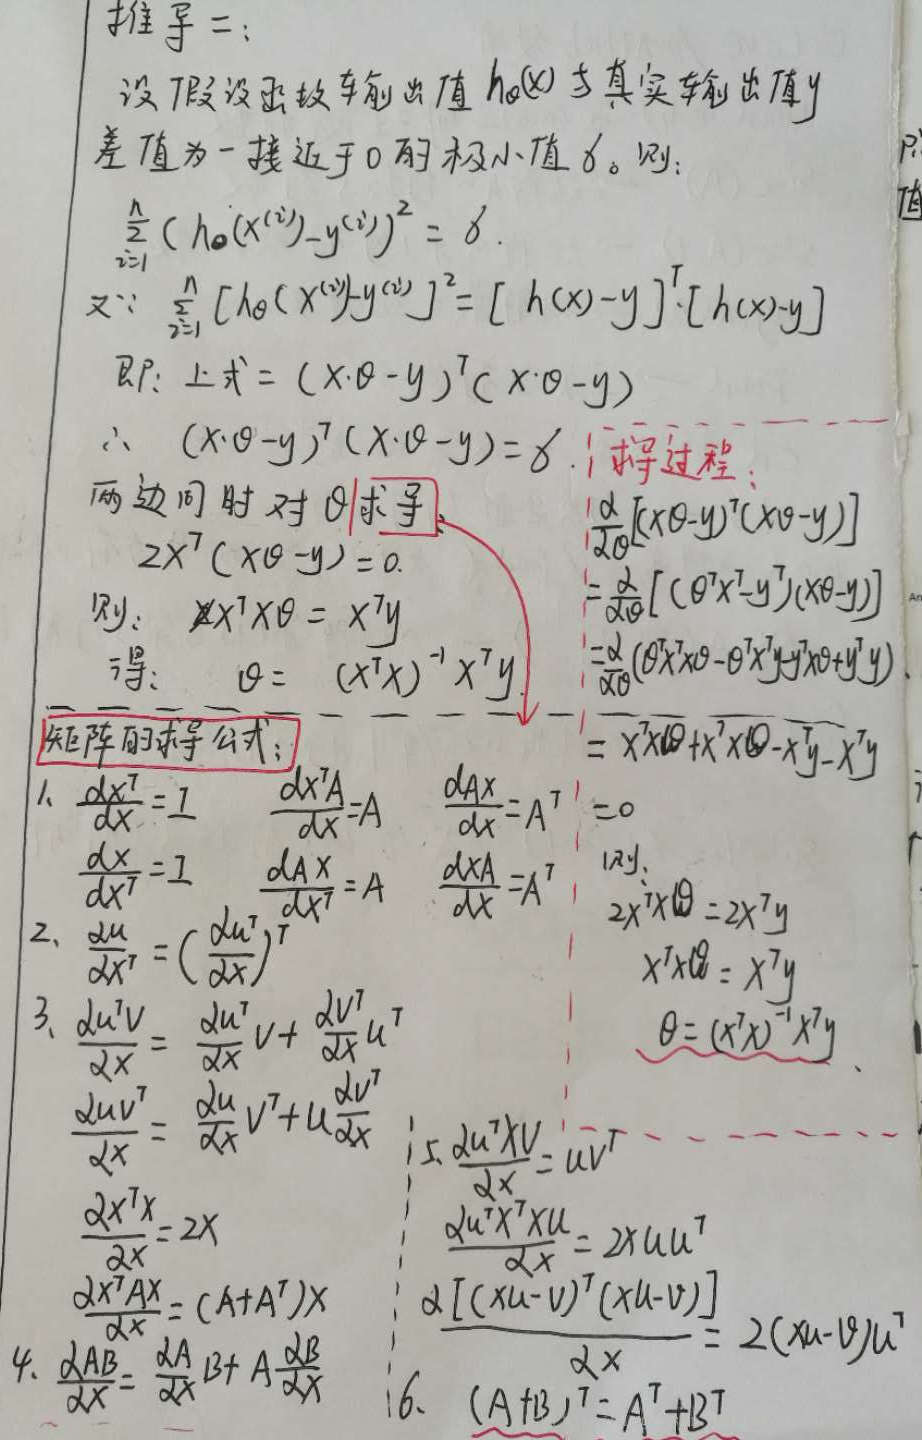 推导二:
设假设函数输出值 hθ(x) 与真实输出值y
差值为一接近于0的极小值δ。则:
n∑i=1 (hθ(x⁽ⁱ⁾)-y⁽ⁱ⁾)² = δ.
又∵ n∑i=1 [hθ(x⁽ⁱ⁾)-y⁽ⁱ⁾]² = [h(x)-y]ᵀ·[h(x)-y]
即: 上式 = (X·θ-y)ᵀ(X·θ-y)
∴ (X·θ-y)ᵀ(X·θ-y)=δ.
两边同时对θ求导:
2Xᵀ(Xθ-y)=0.
则: XᵀXθ = Xᵀy
得: θ = (XᵀX)⁻¹Xᵀy.
求导过程:
∂/∂θ[(Xθ-y)ᵀ(Xθ-y)]
=∂/∂θ[(θᵀXᵀ-yᵀ)(Xθ-y)]
=∂/∂θ(θᵀXᵀXθ-θᵀXᵀy-yᵀXθ+yᵀy)
= XᵀXθ+XᵀXθ-Xᵀy-Xᵀy
=0
则:
2XᵀXθ=2Xᵀy
XᵀXθ=Xᵀy
θ=(XᵀX)⁻¹Xᵀy
矩阵的求导公式:
1、 dxᵀ/dx=I dxᵀA/dx=A dAx/dx=Aᵀ
dx/dxᵀ=I dAx/dxᵀ=A dxA/dx=Aᵀ
2、 ∂u/∂xᵀ=(∂uᵀ/∂x)ᵀ
3、 ∂uᵀv/∂x = ∂uᵀ/∂x v+∂vᵀ/∂x uᵀ
∂uvᵀ/∂x = ∂u/∂x vᵀ+u∂vᵀ/∂x
∂xᵀx/∂x=2x
∂xᵀAx/∂x=(A+Aᵀ)x
4、 ∂AB/∂x=∂A/∂x B+A∂B/∂x
5、 ∂uᵀXv/∂x=uvᵀ
∂uᵀXᵀXu/∂x=2Xuuᵀ
∂[(Xu-v)ᵀ(Xu-v)]/∂x = 2(Xu-v)uᵀ
6、 (A+B)ᵀ=Aᵀ+Bᵀ